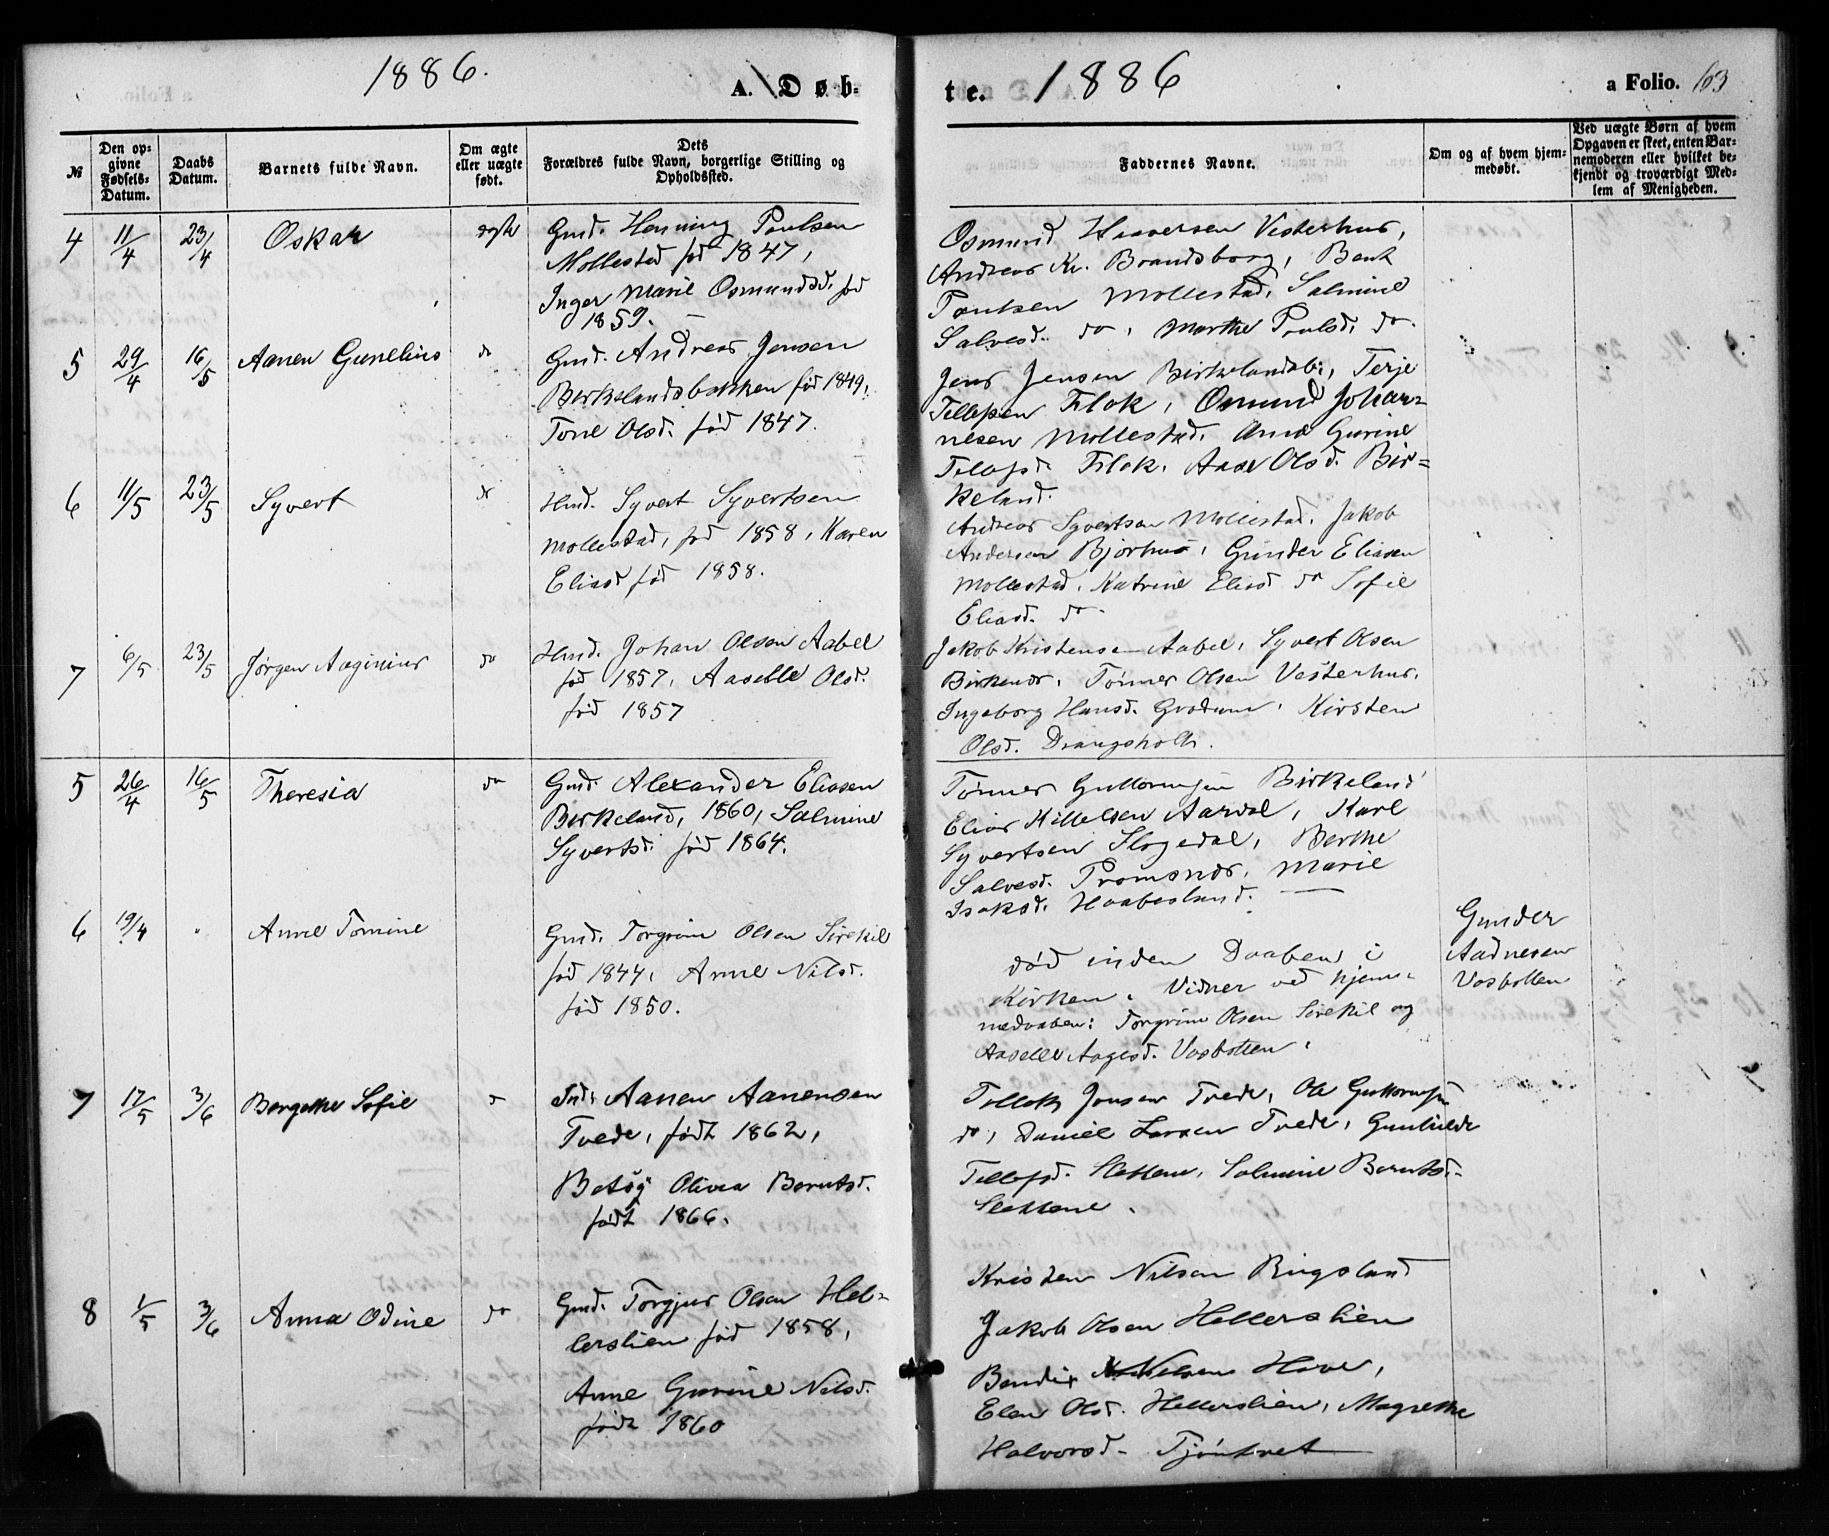 1886.
A. Døb-
te.
1886
a Folio. 63
№
Den op-
givne
Fødsels-
Datum.
Daabs
Datum.
Barnets fulde Navn.
Om ægte
eller uægte
født.
Dets
Forældres fulde Navn, borgerlige Stilling og
Opholdssted.
Faddernes Navne.
Om og af hvem hjem-
medøbt.
Ved uægte Børn af hvem
Opgaven er skeet, enten Bar-
nemoderen eller hvilket be-
kjendt og troværdigt Med-
lem af Menigheden.
4 11/4 23/4 Oskar ægte
Gmd. Henning Poulsen
Mollestad fød 1847,
Inger Marie Osmundsd. fød
1859.
Osmund Haaversen Vesterhus,
Andreas Kr. Brandsborg, Bent
Poulsen Mollestad, Salmine
Salvesd. do, Marthe Poulsd. do.
5 29/4 16/5 Aanen Gunelius do
Gmd. Andreas Jensen
Birkelandsbakken fød 1849,
Tone Olsd. fød 1847.
Jens Jensen Birkelandsb:, Terje
Tellefsen Flak, Osmund Johan-
nesen Mollestad. Anne Gurine
Telefsd. Flak. Aase Olsd. Bir-
keland.
6 11/5 23/5 Syvert do
Hmd. Syvert Syvertsen
Mollestad, fød 1858, Karen
Eliasd fød 1858.
Andreas Syvertsen Mollestad. Jakob
Andersen Bjorhus, Gunder Eliasen
Mollestad, Katrine Eliasd do Sofie
Eliasd. do.
7 6/5 23/5 Jørgen Aaginius do
Hmd. Johan Olsen Aabel
fød 1857, Aaseble Olsd.
fød 1857
Jakob Kristensen Aabel, Syvert Olsen
Birkenes, Tønnes Olsen Vesterhus.
Ingeborg Hansd. Grødum, Kirsten
Olsd. Drangsholt.
5 26/4 16/5 Theresia do
Gmd. Alexander Eliasen
Birkeland, 1860, Salmine
Syvertsd. fød 1864.
Tønnes Guttormsen Birkeland
Elias Kittelsen Aardal, Karl
Syvertsen Flogedal, Berthe
Salvesd. Tromsnes, Marie
Isaksd. Haabesland.
6 19/4 Anne Tomine
Gmd. Torgrim Olsen Sirekil
fød 1844, Anne Nilsd.
fød 1850.
død inden Daaben i
Kirken. Vidner ved hjem-
medaaben: Torgrim Olsen Sirekil og
Aaselle Aagesd. Vasbotten.
Gunder
Aadnesen
Vasbotten
7 17/5 3/6 Bergethe Sofie
Ind. Aanen Aanensen
Tvede, født 1862,
Betsy Olivia Berntsd.
født 1866.
Tellef Jensen Tvede, Ole Guttormsen
do, Daniel Larsen Tvede, Gunhilde
Tellefsd. Slettene, Salmine Berntsd.
Slettene.
8 1/5 3/6 Anna Odine do
Gmd. Torgjus Olsen Hel-
lerslien fød 1858,
Anne Gurine Nilsd.
født 1860
Kristen Nilsen Ringsland
Jakob Olsen Hellerslien
Bendix Nielsen Have,
Elen Olsd. Hellerslien, Magrethe
Halvorsd. Tjøntvet